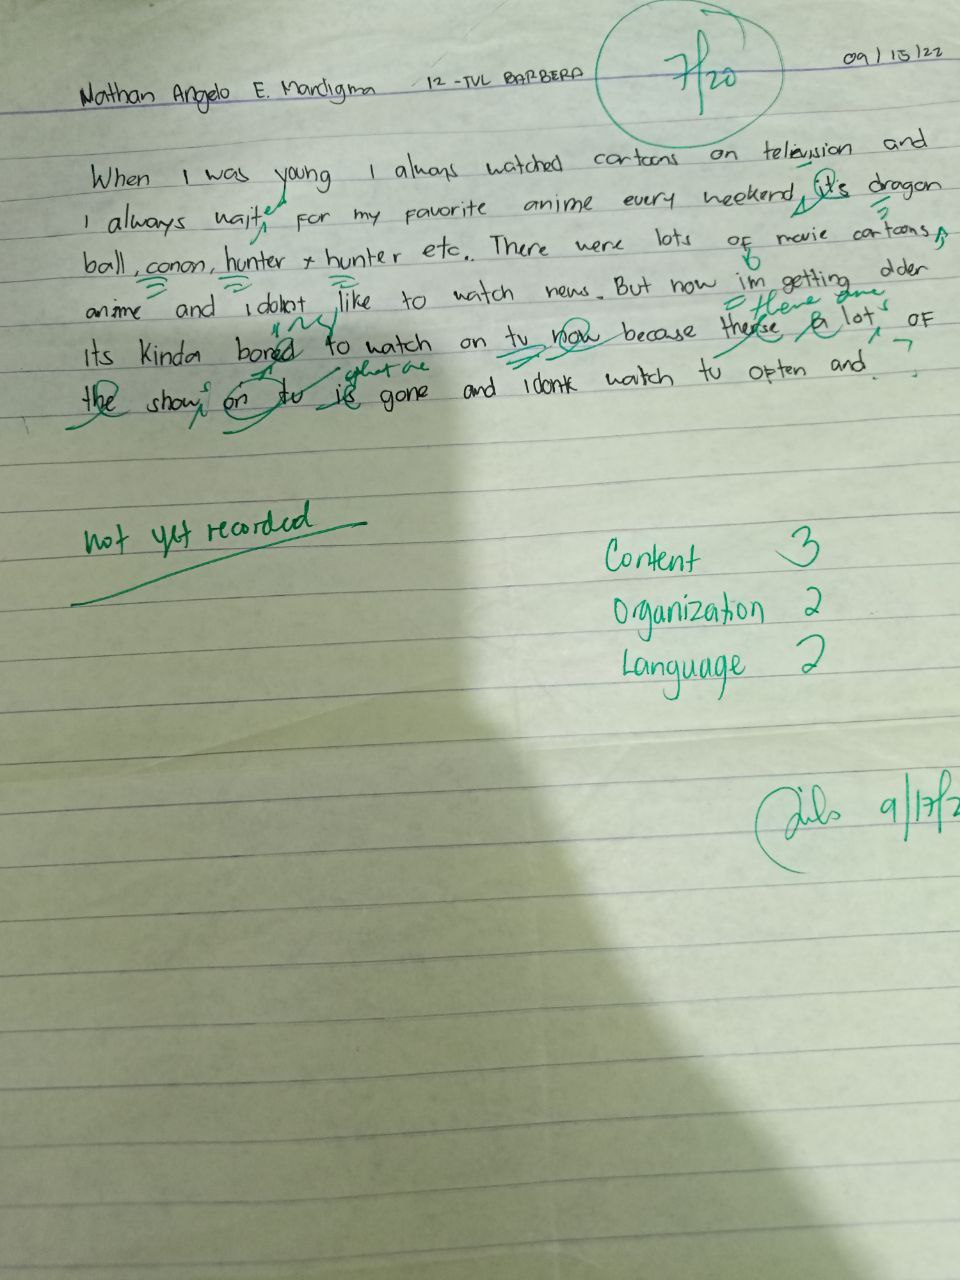 Nathan Angelo E. Mardigma 12 - TVL BARBERA 7/20 09/15/22
When I was young I always watched cartoons on television and
I always wait for my favorite anime every weekend, it's dragon
ball, conan, hunter x hunter etc.. There were lots of movie cartoons,
anime and i do not like to watch news. But now im getting older
there are
its kinda bored to watch on tv now becase a lots of
the shows on tv is gone and i dont watch tv opten and
not yet recorded
Content 3
Organization 2
Language 2
9/17/2